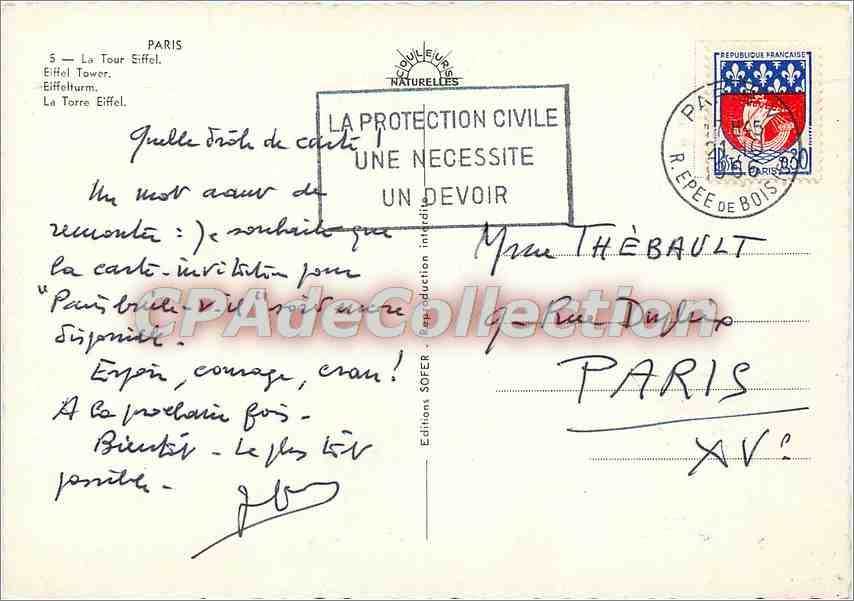 PARIS
5 — La Tour Eiffel.
Eiffel Tower.
Eiffelturm.
La Torre Eiffel.
COULEURS
NATURELLES
LA PROTECTION CIVILE
UNE NECESSITE
UN DEVOIR
REPUBLIQUE FRANÇAISE
0,30
PARIS
PARIS
R. EPEE DE BOIS
Quelle drôle de carte !
Un mot avant de
remonter : je souhaite que
la carte-invitation pour
"Paris brûle-t-il" soit encore
disponible -
Espoir, courage, cran !
A la prochaine fois -
Bientôt - Le plus tôt
possible -
Editions SOFER - Reproduction interdite
Mme THÈBAULT
9 - Rue Dupleix
PARIS
XVe
CPAdeCollection.com